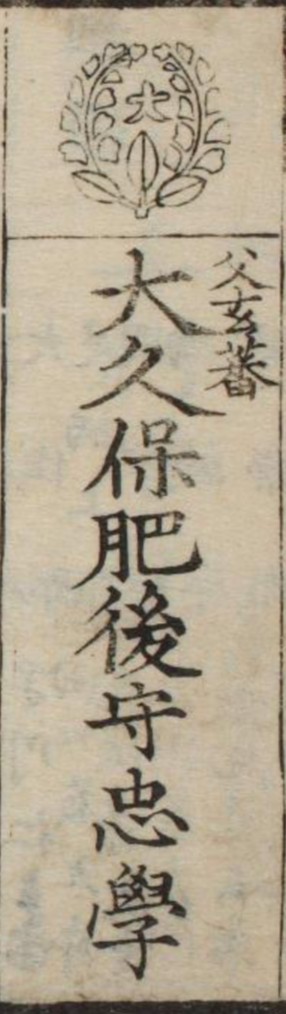 大
父玄蕃
大久保肥後守忠學